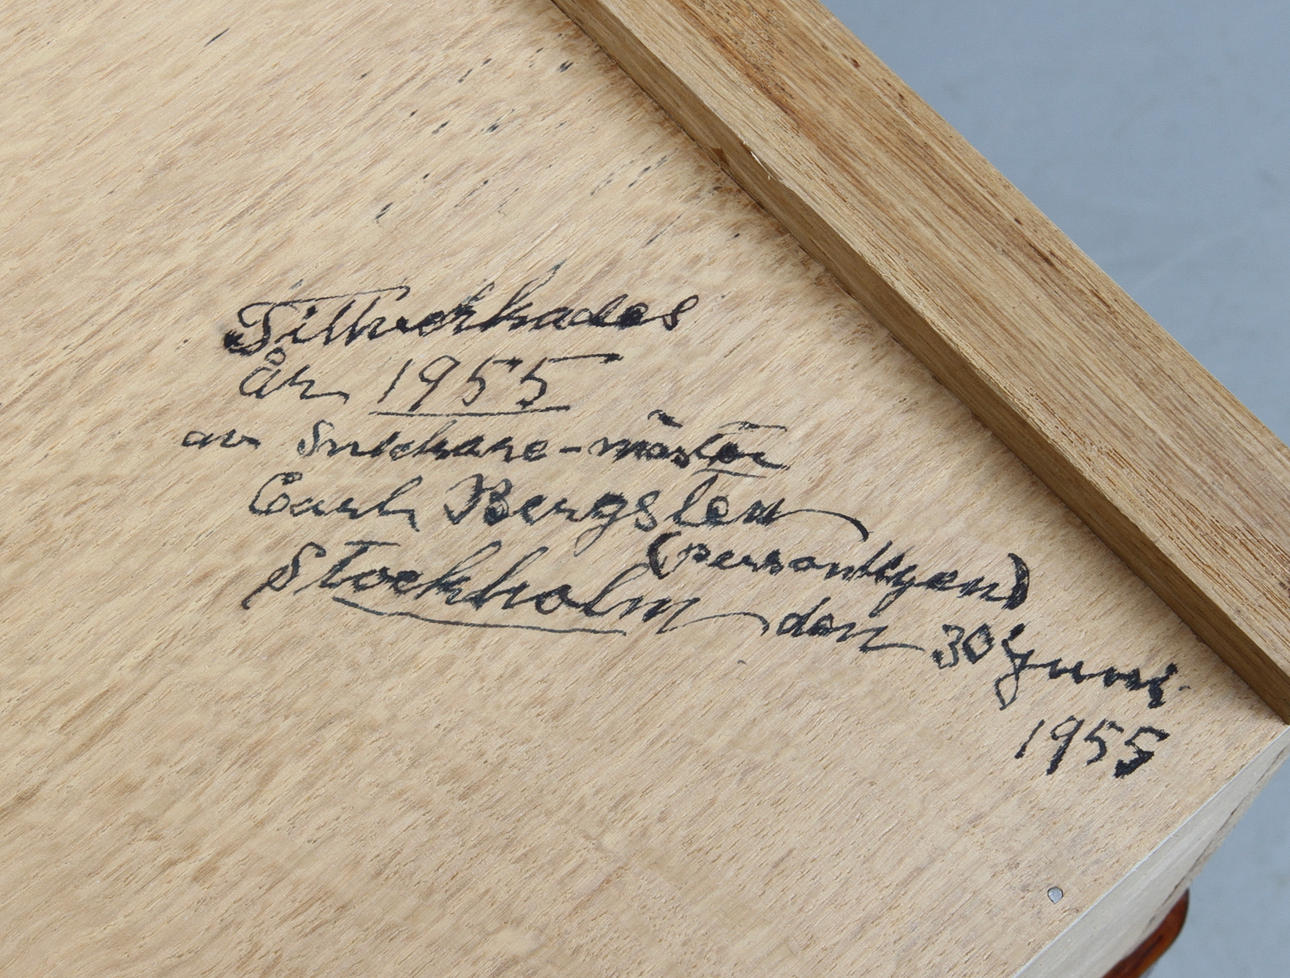 Tillverkades
År 1955
av Snickare-mäster
Carl Bergsten
(personligen)
Stockholm den 30 Juni
1955